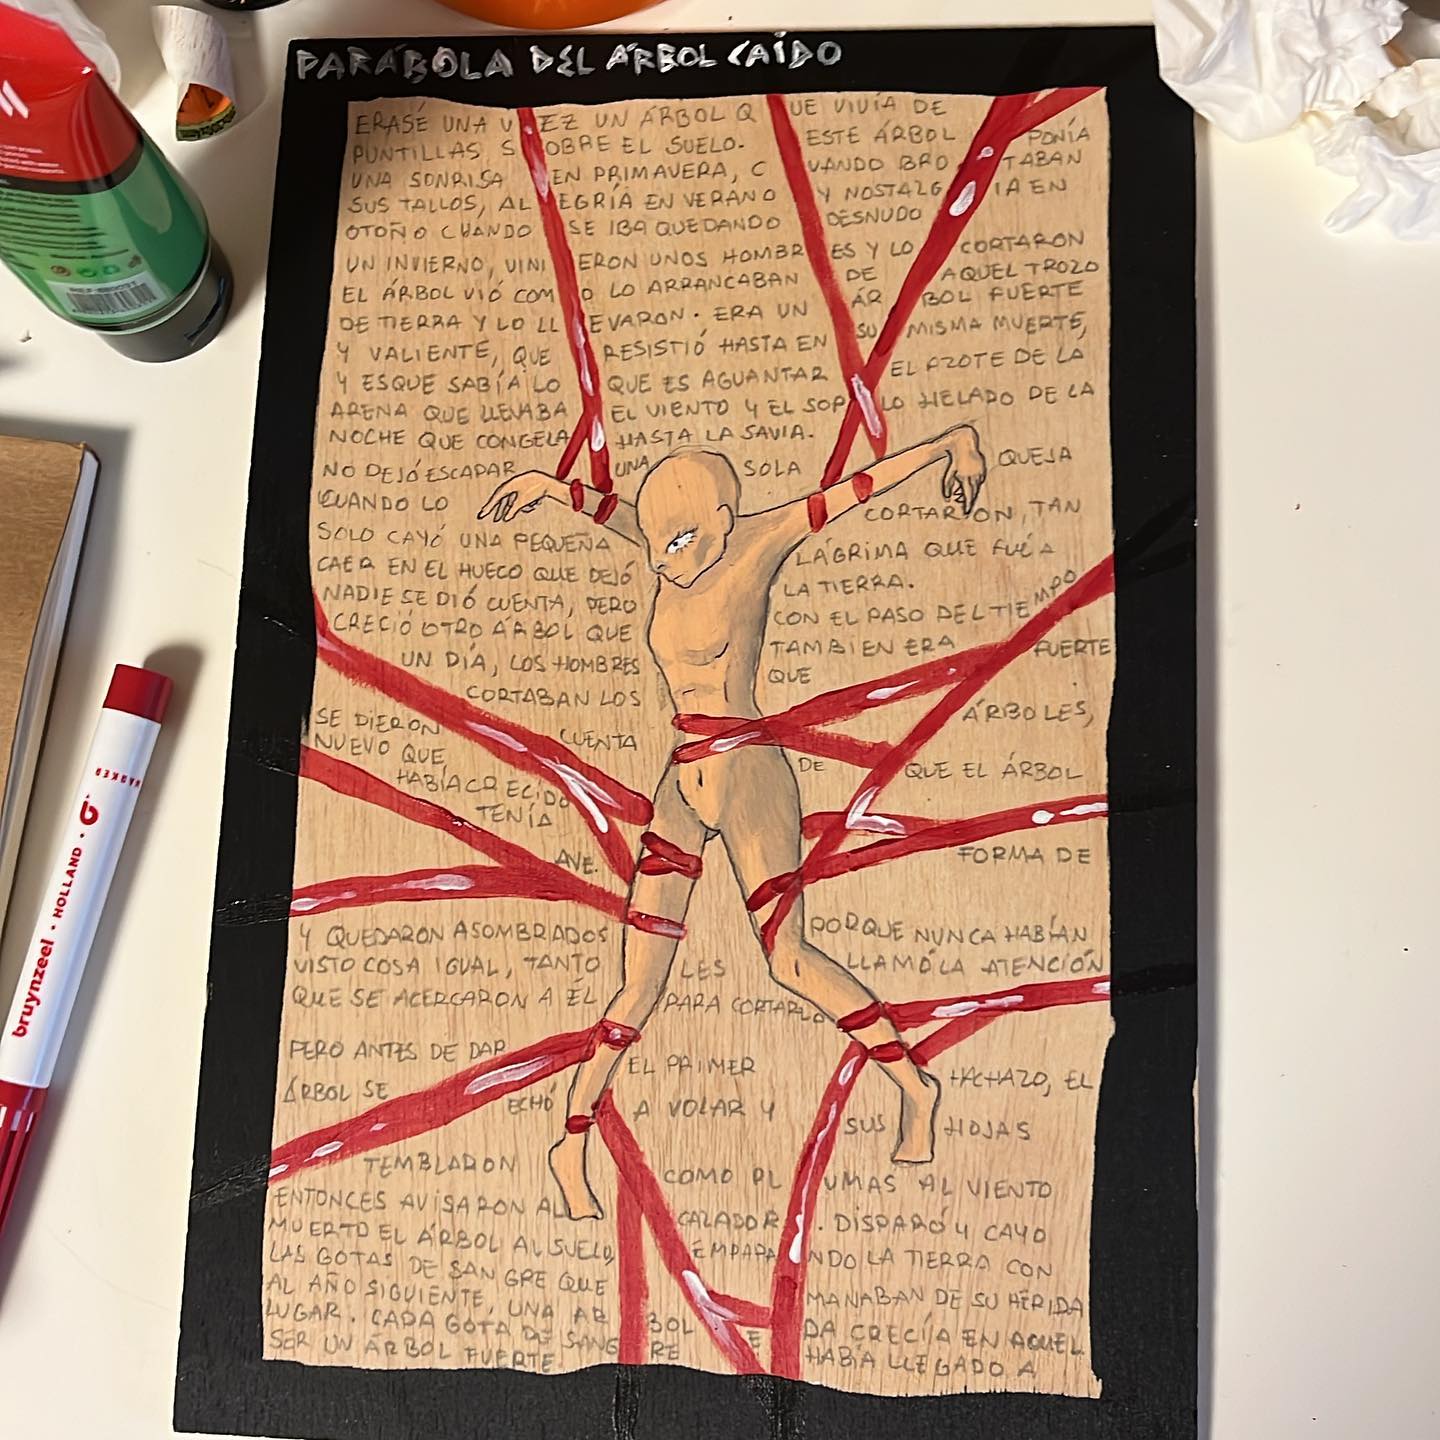 PARÁBOLA DEL ÁRBOL CAÍDO
ERASÉ UNA VEZ UN ÁRBOL QUE VIVÍA DE
PUNTILLAS SOBRE EL SUELO. ESTE ÁRBOL PONÍA
UNA SONRISA EN PRIMAVERA, CUANDO BROTABAN
SUS TALLOS, ALEGRÍA EN VERANO Y NOSTALGIA EN
OTOÑO CUANDO SE IBA QUEDANDO DESNUDO
UN INVIERNO, VINIERON UNOS HOMBRES Y LO CORTARON
EL ÁRBOL VIÓ COMO LO ARRANCABAN DE AQUEL TROZO
DE TIERRA Y LO LLEVARON. ERA UN ÁRBOL FUERTE
Y VALIENTE, QUE RESISTIÓ HASTA EN SU MISMA MUERTE,
Y ESQUE SABÍA LO QUE ES AGUANTAR EL AZOTE DE LA
ARENA QUE LLEVABA EL VIENTO Y EL SOPLO HELADO DE LA
NOCHE QUE CONGELA HASTA LA SAVIA.
NO DEJÓ ESCAPAR UNA SOLA QUEJA
CUANDO LO CORTARON, TAN
SOLO CAYÓ UNA PEQUEÑA LÁGRIMA QUE FUÉ A
CAER EN EL HUECO QUE DEJÓ LA TIERRA.
NADIE SE DIÓ CUENTA, PERO CON EL PASO DEL TIEMPO
CRECIÓ OTRO ÁRBOL QUE TAMBIEN ERA FUERTE
UN DÍA, LOS HOMBRES QUE
CORTABAN LOS ÁRBOLES,
SE DIERON CUENTA DE QUE EL ÁRBOL
NUEVO QUE
HABÍA CRECIDO
TENÍA FORMA DE
AVE.
Y QUEDARON ASOMBRADOS PORQUE NUNCA HABÍAN
VISTO COSA IGUAL, TANTO LES LLAMÓ LA ATENCIÓN
QUE SE ACERCARON A ÉL PARA CORTARLO
PERO ANTES DE DAR EL PRIMER HACHAZO, EL
ÁRBOL SE ECHÓ A VOLAR Y SUS HOJAS
TEMBLARON COMO PLUMAS AL VIENTO
ENTONCES AVISARON AL CAZADOR. DISPARÓ Y CAYO
MUERTO EL ÁRBOL AL SUELO, EMPAPANDO LA TIERRA CON
LAS GOTAS DE SANGRE QUE MANABAN DE SU HERIDA
AL AÑO SIGUIENTE, UNA ARBOLEDA CRECÍA EN AQUEL
LUGAR. CADA GOTA DE SANGRE HABÍA LLEGADO A
SER UN ÁRBOL FUERTE.
bruynzeel · HOLLAND ·
MARKER